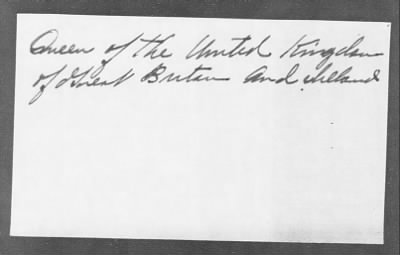 Queen of the United Kingdom
of Great Britain and Ireland